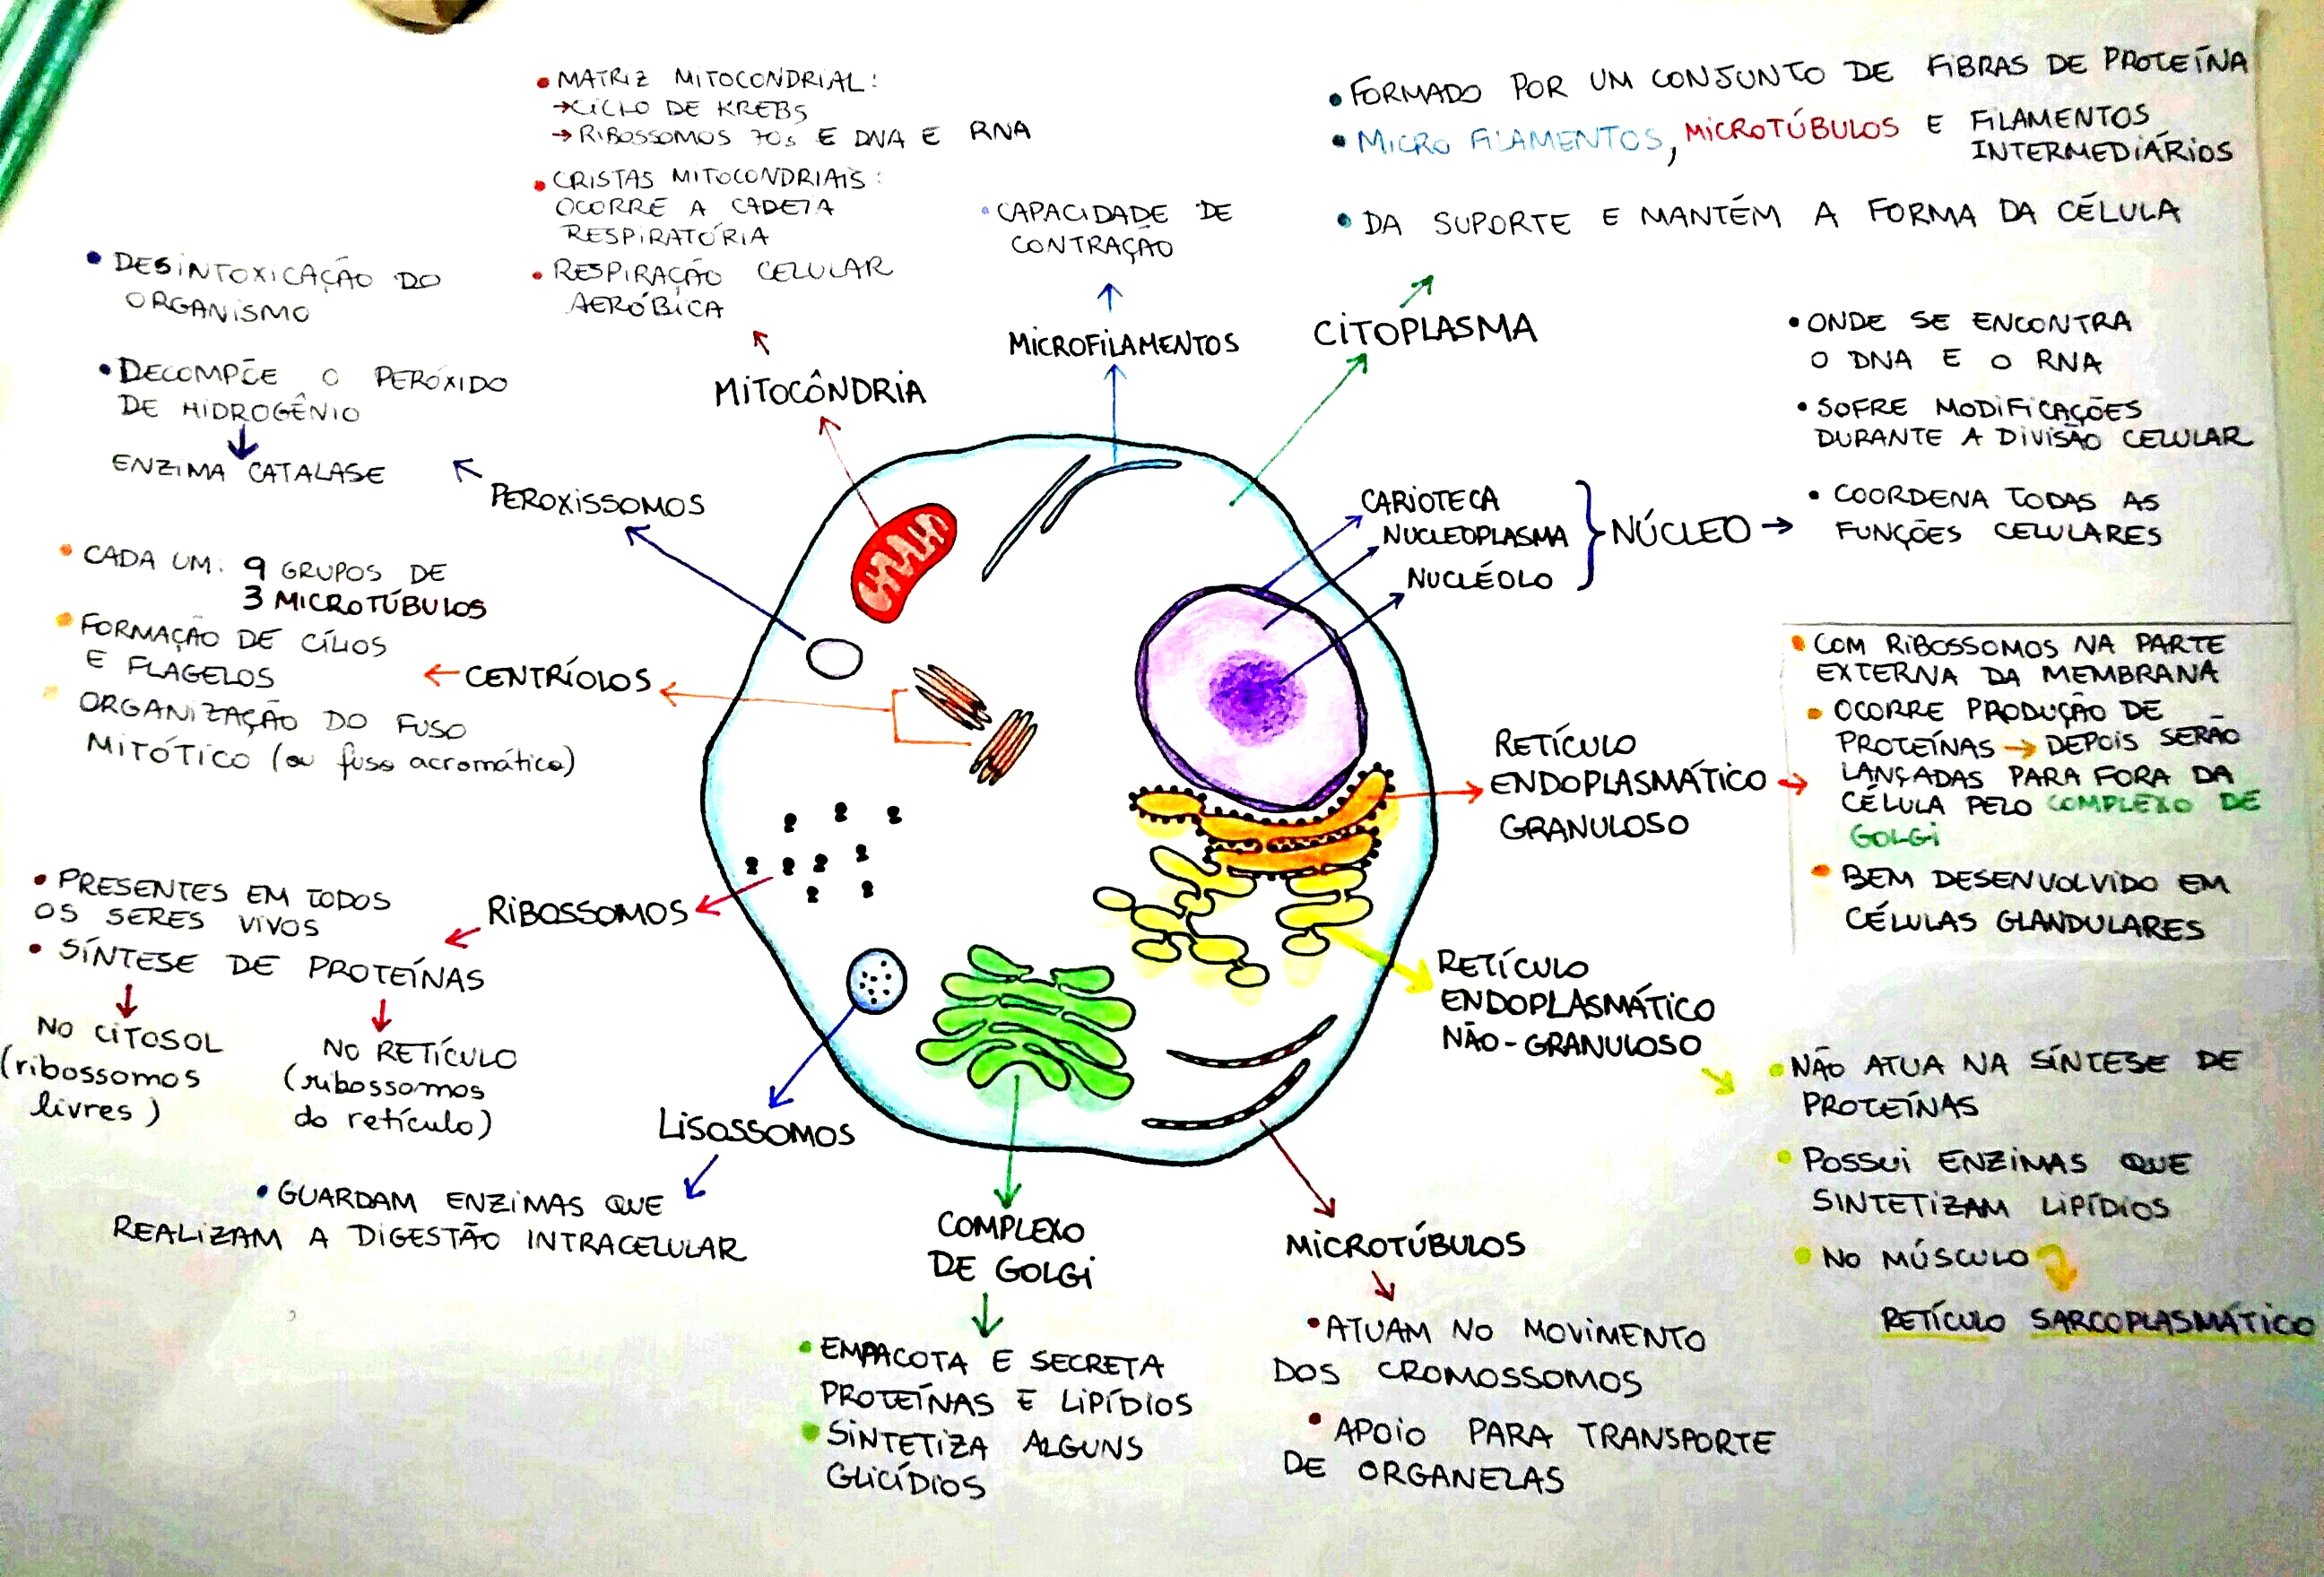 • MATRIZ MITOCONDRIAL:
→ CICLO DE KREBS
→ RIBOSSOMOS 70s E DNA E RNA
• CRISTAS MITOCONDRIAIS:
OCORRE A CADEIA
RESPIRATÓRIA
• RESPIRAÇÃO CELULAR
AERÓBICA
MITOCÔNDRIA
• CAPACIDADE DE
CONTRAÇÃO
MICROFILAMENTOS
• FORMADO POR UM CONJUNTO DE FIBRAS DE PROTEÍNA
• MICRO FILAMENTOS, MICROTÚBULOS E FILAMENTOS
INTERMEDIÁRIOS
• DA SUPORTE E MANTÉM A FORMA DA CÉLULA
CITOPLASMA
• DESINTOXICAÇÃO DO
ORGANISMO
• DECOMPÕE O PERÓXIDO
DE HIDROGÊNIO
ENZIMA CATALASE
PEROXISSOMOS
• ONDE SE ENCONTRA
O DNA E O RNA
• SOFRE MODIFICAÇÕES
DURANTE A DIVISÃO CELULAR
• COORDENA TODAS AS
FUNÇÕES CELULARES
CARIOTECA
NUCLEOPLASMA
NUCLÉOLO
NÚCLEO →
• CADA UM: 9 GRUPOS DE
3 MICROTÚBULOS
• FORMAÇÃO DE CÍLIOS
E FLAGELOS
• ORGANIZAÇÃO DO FUSO
MITÓTICO (ou fuso acromático)
CENTRÍOLOS
RETÍCULO
ENDOPLASMÁTICO
GRANULOSO
• COM RIBOSSOMOS NA PARTE
EXTERNA DA MEMBRANA
• OCORRE PRODUÇÃO DE
PROTEÍNAS → DEPOIS SERÃO
LANÇADAS PARA FORA DA
CÉLULA PELO COMPLEXO DE
GOLGI
• BEM DESENVOLVIDO EM
CÉLULAS GLANDULARES
• PRESENTES EM TODOS
OS SERES VIVOS
• SÍNTESE DE PROTEÍNAS
NO CITOSOL
(ribossomos
livres)
NO RETÍCULO
(ribossomos
do retículo)
RIBOSSOMOS
RETÍCULO
ENDOPLASMÁTICO
NÃO-GRANULOSO
• NÃO ATUA NA SÍNTESE DE
PROTEÍNAS
• POSSUI ENZIMAS QUE
SINTETIZAM LIPÍDIOS
• NO MÚSCULO
RETÍCULO SARCOPLASMÁTICO
LISOSSOMOS
• GUARDAM ENZIMAS QUE
REALIZAM A DIGESTÃO INTRACELULAR
COMPLEXO
DE GOLGI
• EMPACOTA E SECRETA
PROTEÍNAS E LIPÍDIOS
• SINTETIZA ALGUNS
GLICÍDIOS
MICROTÚBULOS
• ATUAM NO MOVIMENTO
DOS CROMOSSOMOS
• APOIO PARA TRANSPORTE
DE ORGANELAS